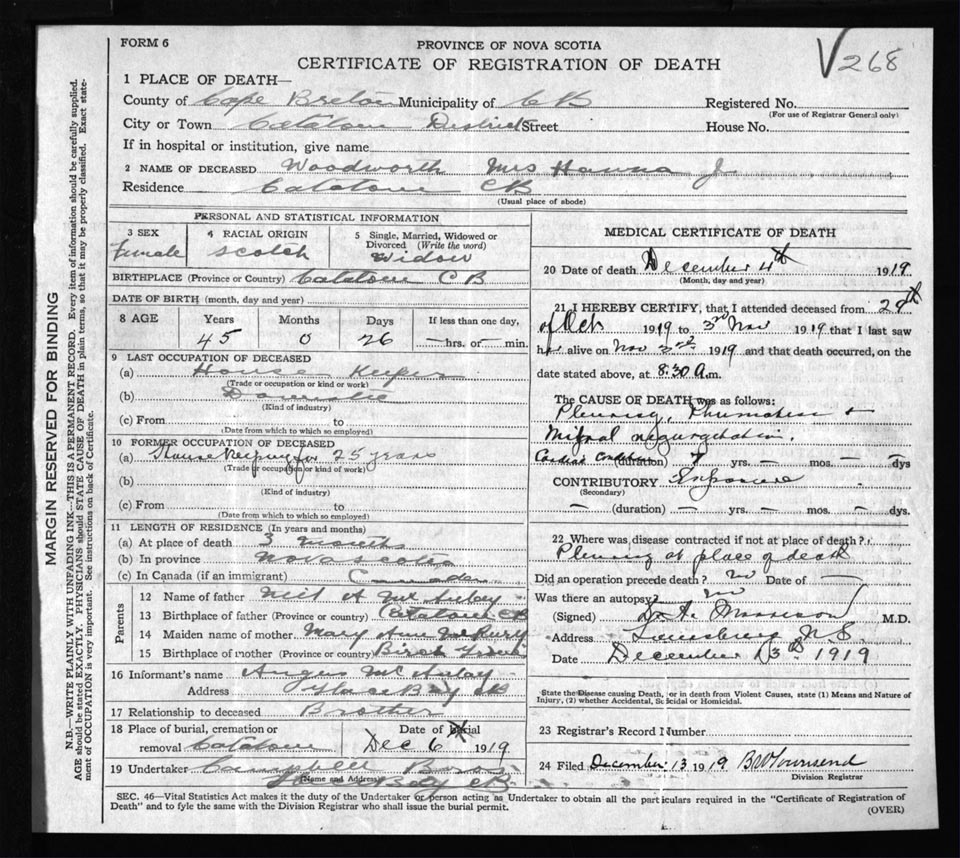 FORM 6
PROVINCE OF NOVA SCOTIA
CERTIFICATE OF REGISTRATION OF DEATH
√268
1 PLACE OF DEATH—
County of Cape Breton Municipality of CB Registered No.
(For use of Registrar General only)
City or Town Catalone District Street House No.
If in hospital or institution, give name
2 NAME OF DECEASED Woodworth Mrs Hanna J.
Residence Catalone CB
(Usual place of abode)
PERSONAL AND STATISTICAL INFORMATION
3 SEX
female
4 RACIAL ORIGIN
Scotch
5 Single, Married, Widowed or Divorced (Write the word)
Widow
BIRTHPLACE (Province or Country) Catalone CB
DATE OF BIRTH (month, day and year)
8 AGE Years Months Days If less than one day,
45 0 26 — hrs. or — min.
9 LAST OCCUPATION OF DECEASED
(a) House Keeper
(Trade or occupation or kind or work)
(b) Domestic
(Kind of industry)
(c) From to
(Date from which to which so employed)
10 FORMER OCCUPATION OF DECEASED
(a) House keeping for 25 years
(Trade or occupation or kind of work)
(b)
(Kind of industry)
(c) From to
(Date from which to which so employed)
11 LENGTH OF RESIDENCE (In years and months)
(a) At place of death 3 months
(b) In province Nova Scotia
(c) In Canada (if an immigrant)
Parents
12 Name of father Neil A
13 Birthplace of father (Province or country) Catalone CB
14 Maiden name of mother Mary Ann
15 Birthplace of mother (Province or country) Birch Grove
16 Informant's name Angus
Address Glace Bay CB
17 Relationship to deceased Brother
18 Place of burial, cremation or removal Catalone
Date of burial
Dec 6 1919
19 Undertaker Campbell Bros
(Name and Address)
Glace Bay CB
MEDICAL CERTIFICATE OF DEATH
20 Date of death December 4th 1919
(Month, day and year)
21 I HEREBY CERTIFY, that I attended deceased from 29th
of Oct 1919 to 3rd Nov 1919 that I last saw
her alive on Nov 3rd 1919 and that death occurred, on the
date stated above, at 8:30 a.m.
The CAUSE OF DEATH was as follows:
Pleurisy, Rheumatism &
Mitral regurgitation.
Cardiac Condition (duration) yrs. — mos. — dys
CONTRIBUTORY Exposure
(Secondary)
— (duration) — yrs. — mos. — dys.
22 Where was disease contracted if not at place of death?
Pleurisy at place of death
Did an operation precede death? no Date of —
Was there an autopsy? no
(Signed) M.D.
Address Louisburg N.S.
Date December 13th 1919
State the Disease causing Death, or in death from Violent Causes, state (1) Means and Nature of
Injury, (2) whether Accidental, Suicidal or Homicidal.
23 Registrar's Record Number
24 Filed December 13 1919 Townsend
Division Registrar
SEC. 46—Vital Statistics Act makes it the duty of the Undertaker or person acting as Undertaker to obtain all the particulars required in the "Certificate of Registration of
Death" and to fyle the same with the Division Registrar who shall issue the burial permit.
(OVER)
MARGIN RESERVED FOR BINDING
N.B.—WRITE PLAINLY WITH UNFADING INK—THIS IS A PERMANENT RECORD. Every item of information should be carefully supplied.
AGE should be stated EXACTLY. PHYSICIANS should STATE CAUSE OF DEATH in plain terms, so that it may be properly classified. Exact state-
ment of OCCUPATION is very important. See instructions on back of Certificate.